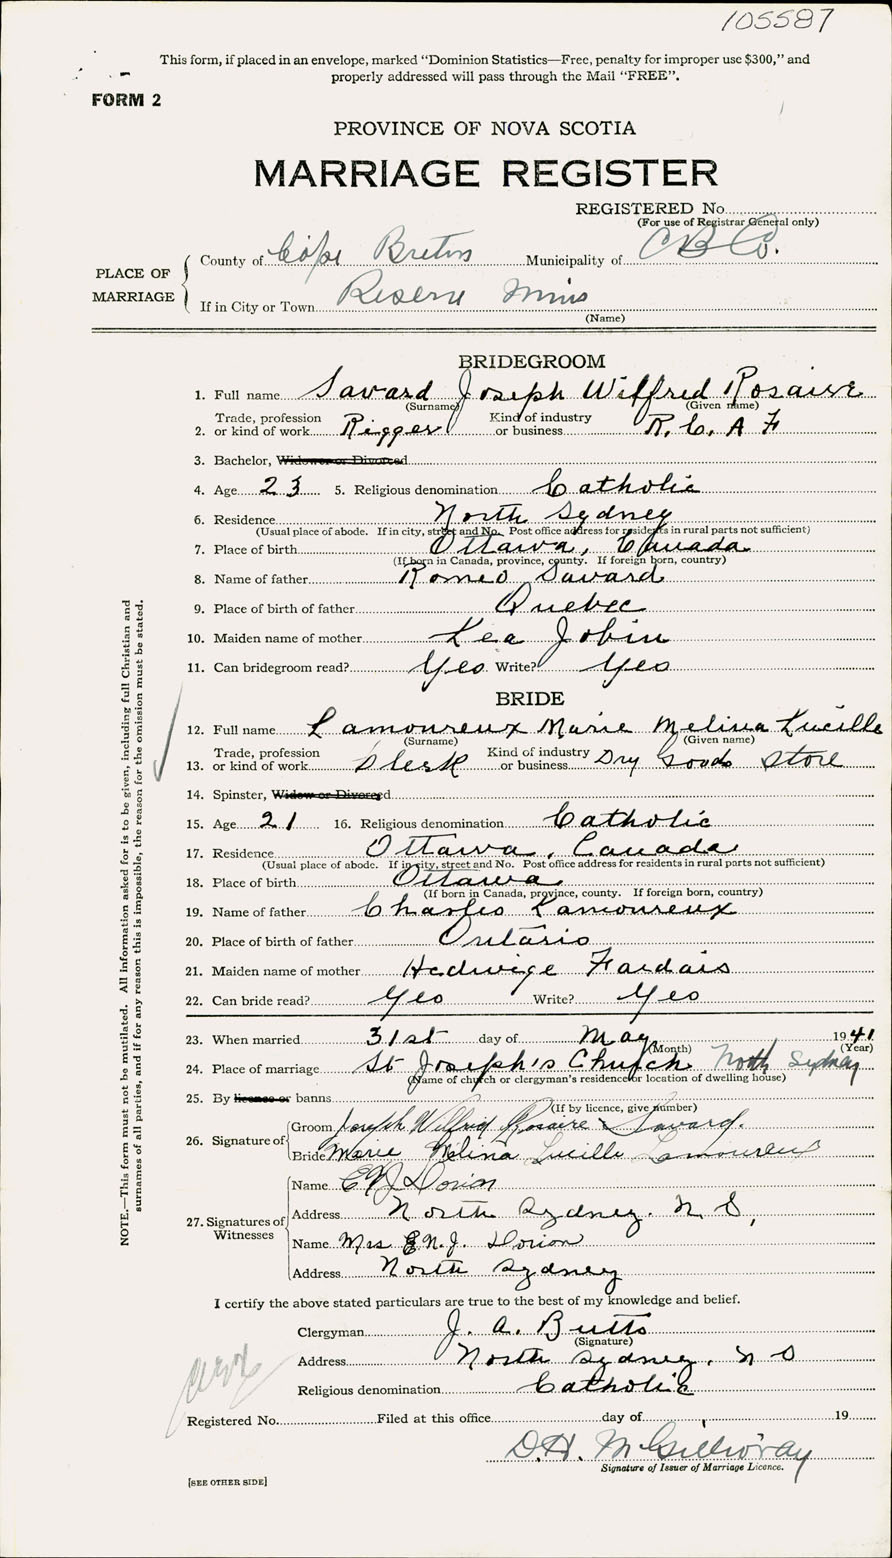 105587
This form, if placed in an envelope, marked “Dominion Statistics—Free, penalty for improper use $300,” and
properly addressed will pass through the Mail “FREE”.
FORM 2
PROVINCE OF NOVA SCOTIA
MARRIAGE REGISTER
REGISTERED No.
(For use of Registrar General only)
PLACE OF MARRIAGE
County of Cape Breton Municipality of C B Co.
If in City or Town Reserve Mines
(Name)
BRIDEGROOM
1. Full name Savard Joseph Wilfred Rosaire
(Surname) (Given name)
2. Trade, profession or kind of work Rigger Kind of industry or business R. C. A F
3. Bachelor, Widower or Divorced
4. Age 23 5. Religious denomination Catholic
6. Residence North Sydney
(Usual place of abode. If in city, street and No. Post office address for residents in rural parts not sufficient)
7. Place of birth Ottawa, Canada
(If born in Canada, province, county. If foreign born, country)
8. Name of father Romeo Savard
9. Place of birth of father Quebec
10. Maiden name of mother Lea Jobin
11. Can bridegroom read? Yes Write? Yes
BRIDE
12. Full name Lamoureux Marie Melina Lucille
(Surname) (Given name)
13. Trade, profession or kind of work Clerk Kind of industry or business Dry Goods Store
14. Spinster, Widow or Divorced
15. Age 21 16. Religious denomination Catholic
17. Residence Ottawa, Canada
(Usual place of abode. If in city, street and No. Post office address for residents in rural parts not sufficient)
18. Place of birth Ottawa
(If born in Canada, province, county. If foreign born, country)
19. Name of father Charles Lamoureux
20. Place of birth of father Ontario
21. Maiden name of mother Hedwige Fardais
22. Can bride read? Yes Write? Yes
23. When married 31st day of May 1941
(Month) (Year)
24. Place of marriage St Joseph's Church North Sydney
(Name of church or clergyman's residence or location of dwelling house)
25. By licence or banns
(If by licence, give number)
26. Signature of
Groom Joseph Wilfrid Rosaire Savard.
Bride Marie Melina Lucille Lamoureux
27. Signatures of Witnesses
Name E N J Dorion
Address North Sydney. N S,
Name Mrs E. N. J. Dorion
Address North Sydney
I certify the above stated particulars are true to the best of my knowledge and belief.
Clergyman J. A. Butts
(Signature)
Address North Sydney. N S
Religious denomination Catholic
Registered No. Filed at this office day of 19
D. H. McGillivray
Signature of Issuer of Marriage Licence.
[SEE OTHER SIDE]
NOTE.—This form must not be mutilated. All information asked for is to be given, including full Christian and
surnames of all parties, and if for any reason this is impossible, the reason for the omission must be stated.